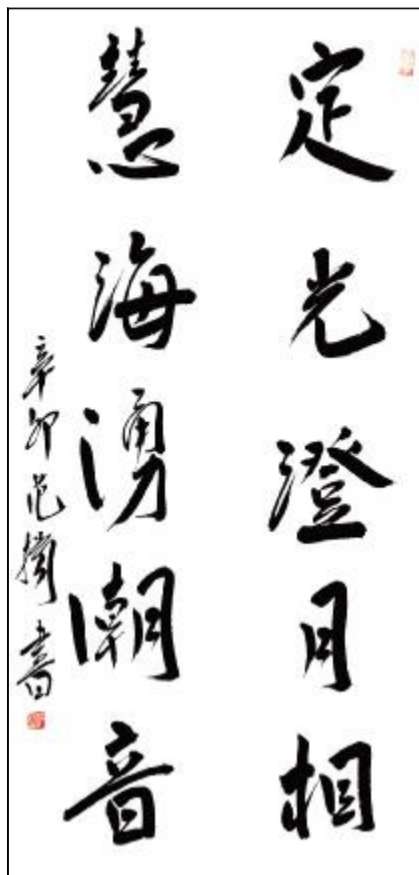 定光澄月相
慧海湧潮音
辛卯范書